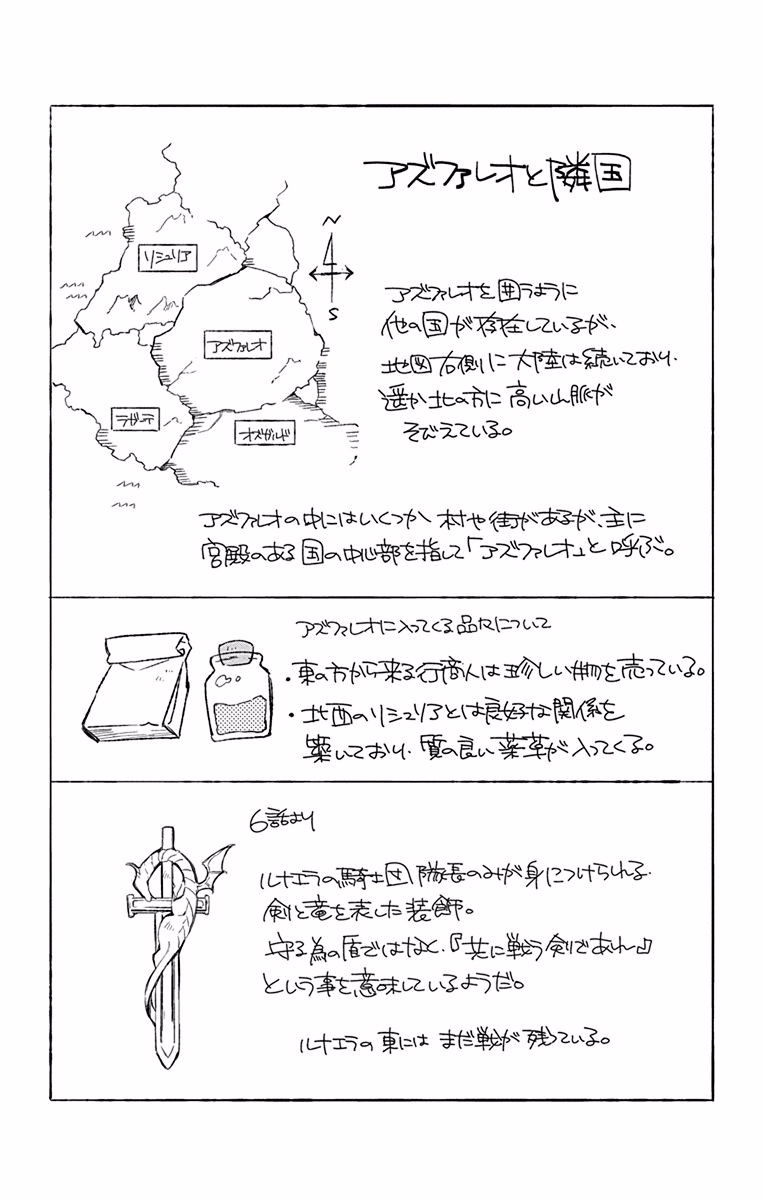 アズファレオと隣国
N
S
リシュリア
アズファレオ
ラガーテ
オズガルド
アズファレオを囲うように
他の国が存在しているが、
地図右側に大陸は続いており、
遥か北の方に高い山脈が
そびえている。
アズファレオの中にはいくつか村や街があるが、主に
宮殿のある国の中心部を指して「アズファレオ」と呼ぶ。
アズファレオに入ってくる品々について
・東の方から来る行商人は珍しい物を売っている。
・北西のリシュリアとは良好な関係を
築いており、質の良い薬草が入ってくる。
6話より
ルナエラの騎士団隊長のみが身につけられる、
剣と竜を表した装飾。
守る為の盾ではなく、『共に戦う剣であれ』
という事を意味しているようだ。
ルナエラの東にはまだ戦が残っている。